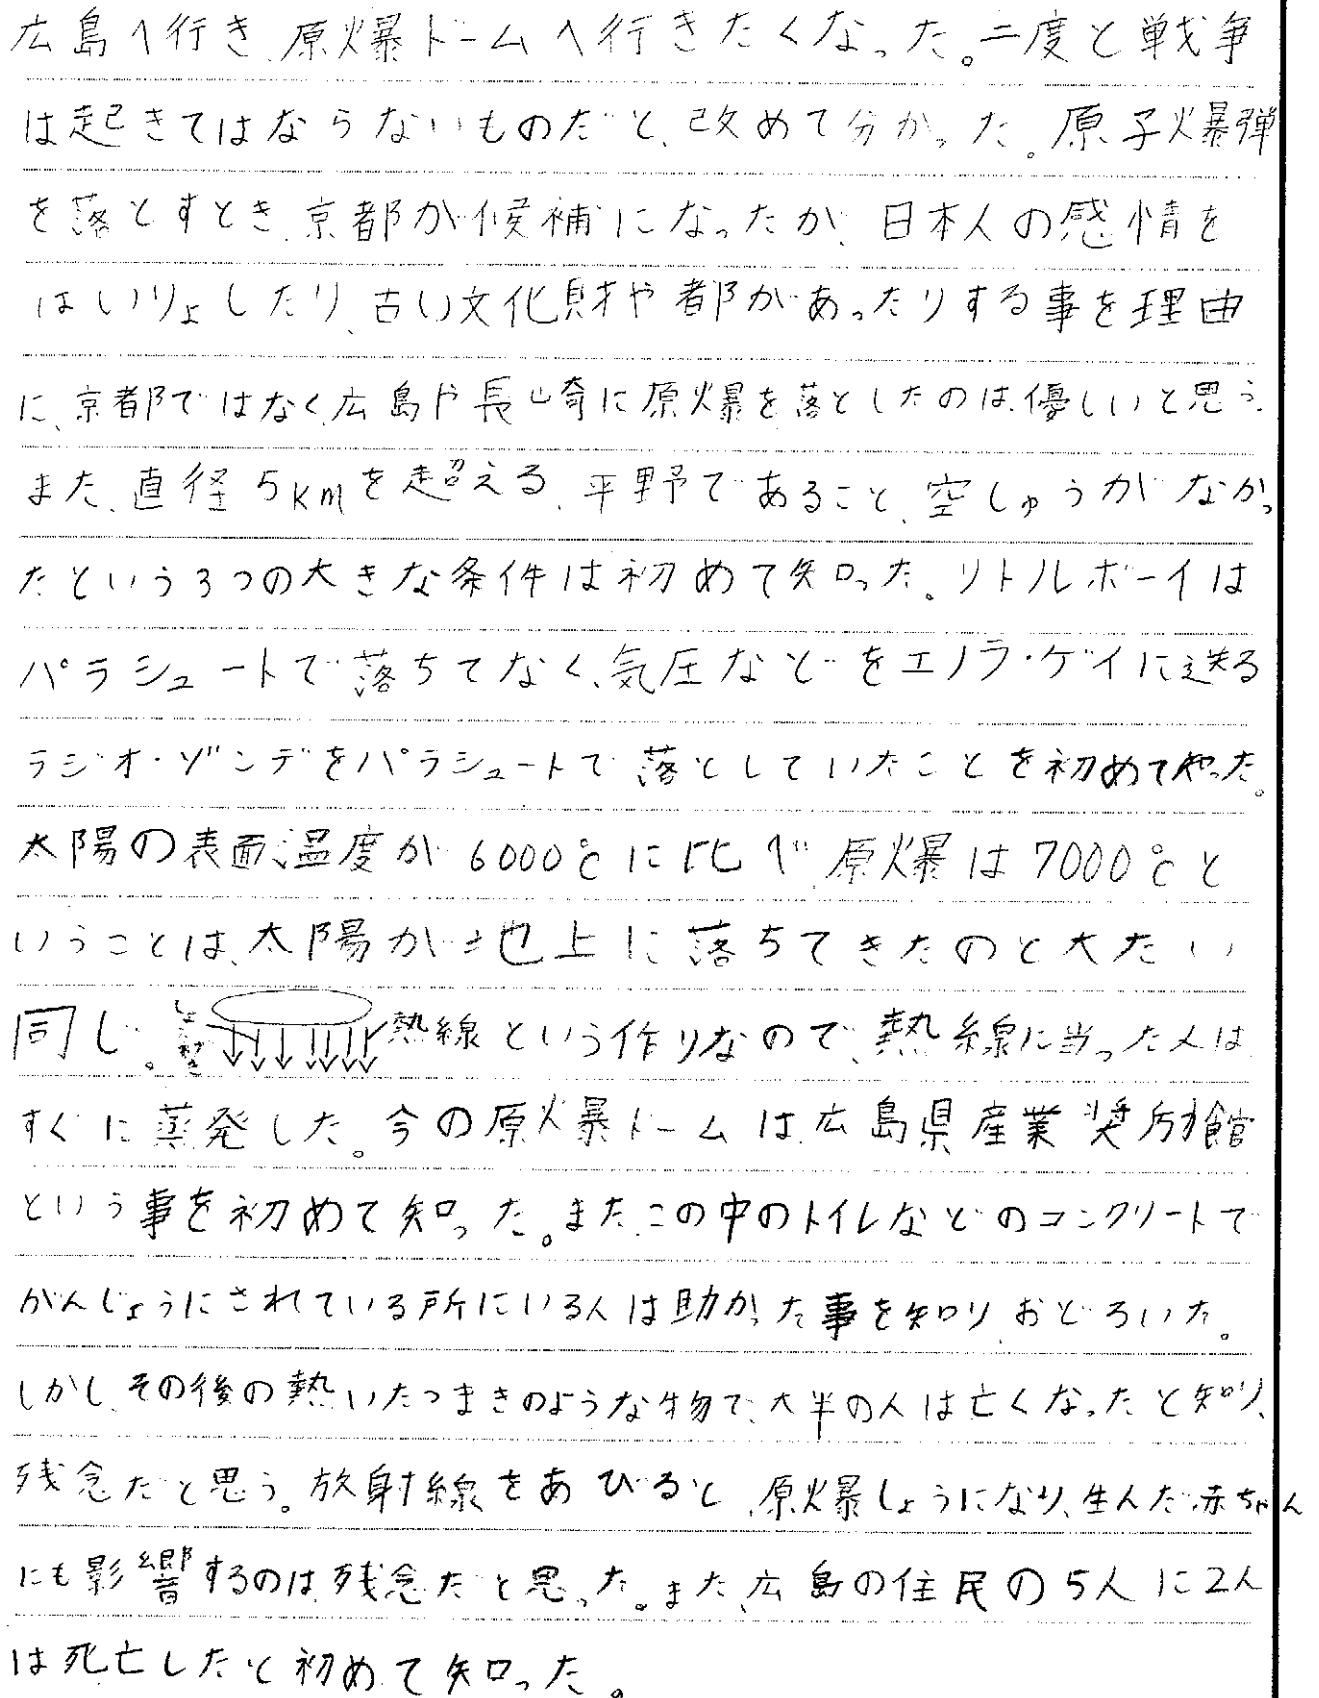 広島へ行き、原爆ドームへ行きたくなった。二度と戦争
は起きてはならないものだと、改めて分かった。原子爆弾
を落とすとき、京都が候補になったが、日本人の感情を
はいりょしたり、古い文化財や都があったりする事を理由
に、京都ではなく、広島や長崎に原爆を落としたのは、優しいと思う。
また、直径5kmを超える、平野であること、空しゅうがなかっ
たという3つの大きな条件は初めて知った。リトルボーイは
パラシュートで落ちてなく、気圧などをエノラ・ゲイに送る
ラジオ・ゾンデをパラシュートで落としていたことを初めて知った。
太陽の表面温度が6000℃に比べ、原爆は7000℃と
いうことは、太陽が地上に落ちてきたのと大たい
同じ。熱線という作りなので、熱線に当った人は
すぐに蒸発した。今の原爆ドームは、広島県産業奨励館
という事を初めて知った。また、この中のトイレなどのコンクリートで
がんじょうにされている所にいる人は助かった事を知り、おどろいた。
しかし、その後の熱いたつまきのような物で、大半の人は亡くなったと知り、
残念だと思う。放射線をあびると、原爆しょうになり、生んだ赤ちゃん
にも影響するのは、残念だと思った。また、広島の住民の5人に2人
は死亡したと初めて知った。